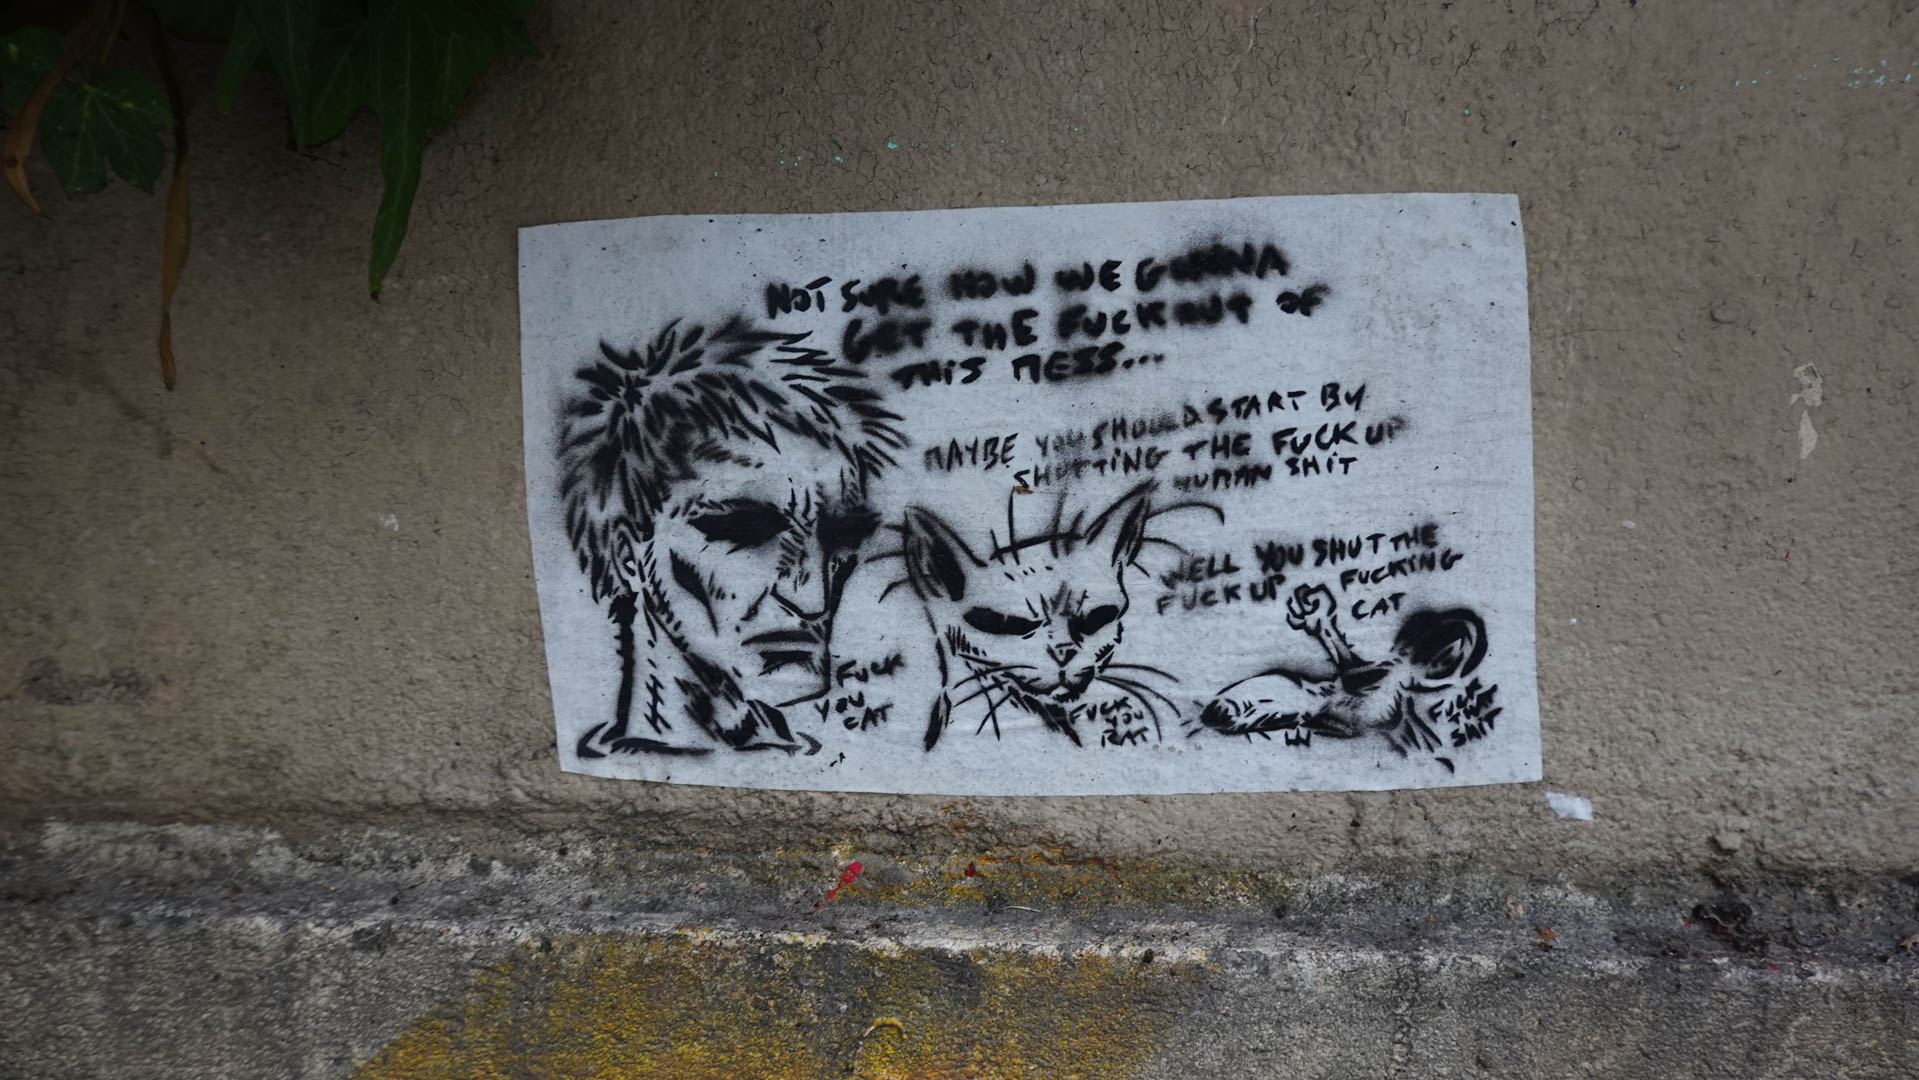 NOT SURE HOW WE GONNA
GET THE FUCK OUT OF
THIS MESS...
MAYBE YOU SHOULD START BY
SHUTTING THE FUCK UP
HUMAN SHIT
WELL YOU SHUT THE
FUCK UP FUCKING
CAT
FUCK
YOU
CAT
FUCK
YOU
RAT
FUCK
THAT
SHIT